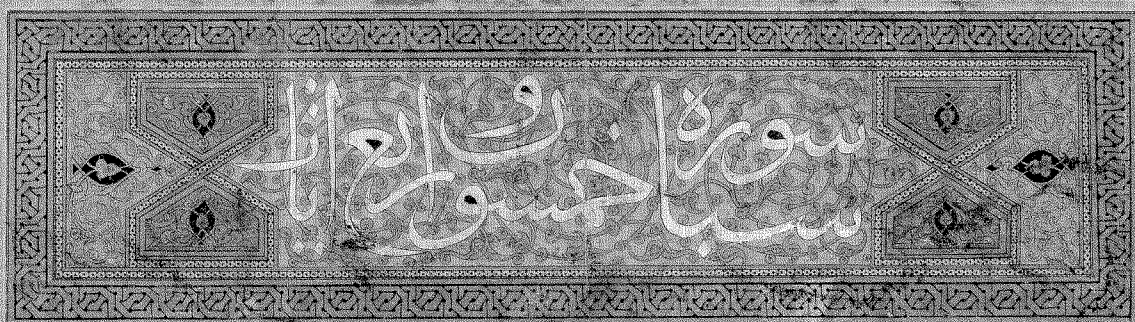 سوره سبا خمسون و اربع ايات